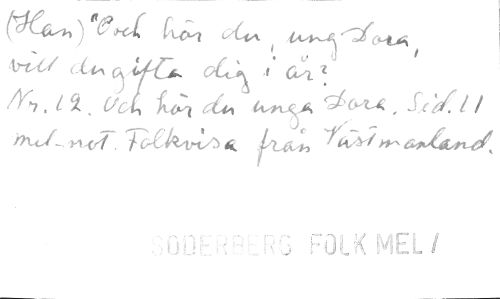 (Han) "Och hör du, ung Dora,
vill du gifta dig i år?
Nr. 12. Och hör du unga Dora. Sid. 11
mel-not. Folkvisa från Västmanland.
SÖDERBERG FOLK MEL /